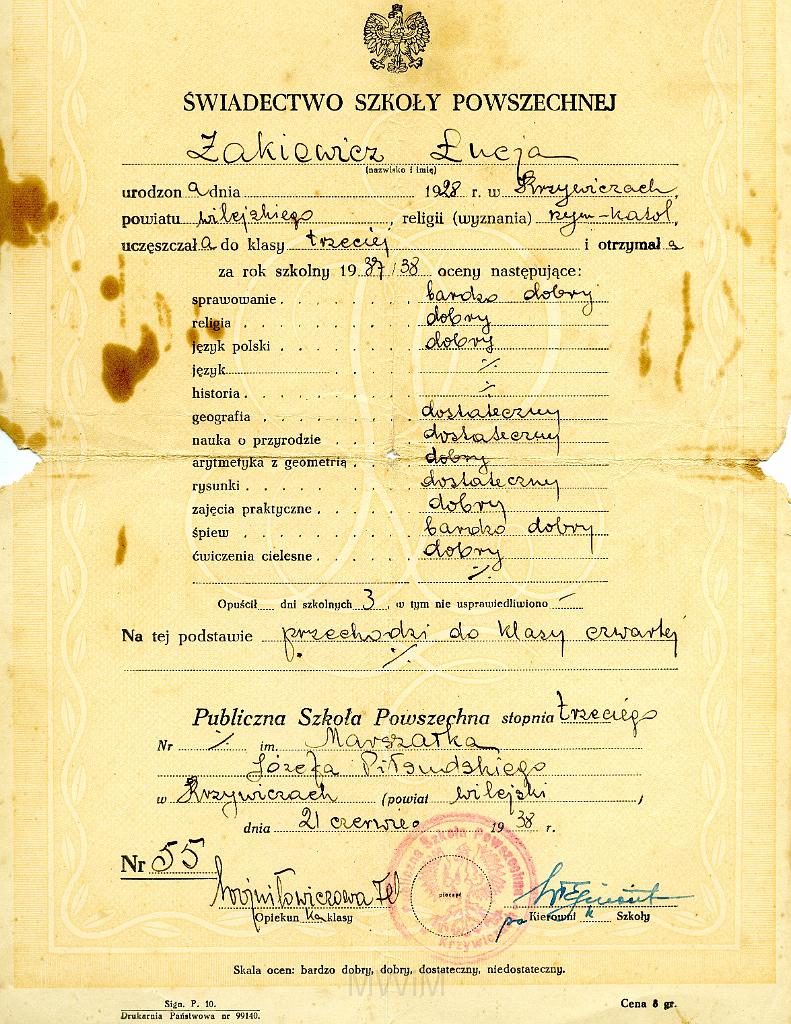 ŚWIADECTWO SZKOŁY POWSZECHNEJ
Żakiewicz Łucja
(nazwisko i imię)
urodzon a dnia 1928 r. w Krzywiczach,
powiatu wilejskiego, religii (wyznania) rzym-katol,
uczęszczał a do klasy trzeciej i otrzymał a
za rok szkolny 1937/38 oceny następujące:
sprawowanie bardzo dobry
religia dobry
język polski dobry
język ·/.
historia ·/.
geografia dostateczny
nauka o przyrodzie dostateczny
arytmetyka z geometrią dobry
rysunki dostateczny
zajęcia praktyczne dobry
śpiew bardzo dobry
ćwiczenia cielesne dobry
·/.
Opuścił dni szkolnych 3, w tym nie usprawiedliwiono —
Na tej podstawie przechodzi do klasy czwartej
·/.
Publiczna Szkoła Powszechna stopnia trzeciego
Nr ·/. im. Marszałka
Józefa Piłsudskiego
w Krzywiczach (powiat wilejski)
dnia 21 czerwiec 1938 r.
Nr 55
Wojniłowiczowa
Opiekun ka klasy
pieczęć
Kierowni k Szkoły
Skala ocen: bardzo dobry, dobry, dostateczny, niedostateczny.
MWiM
Sign. P. 10.
Drukarnia Państwowa nr 99140.
Cena 8 gr.